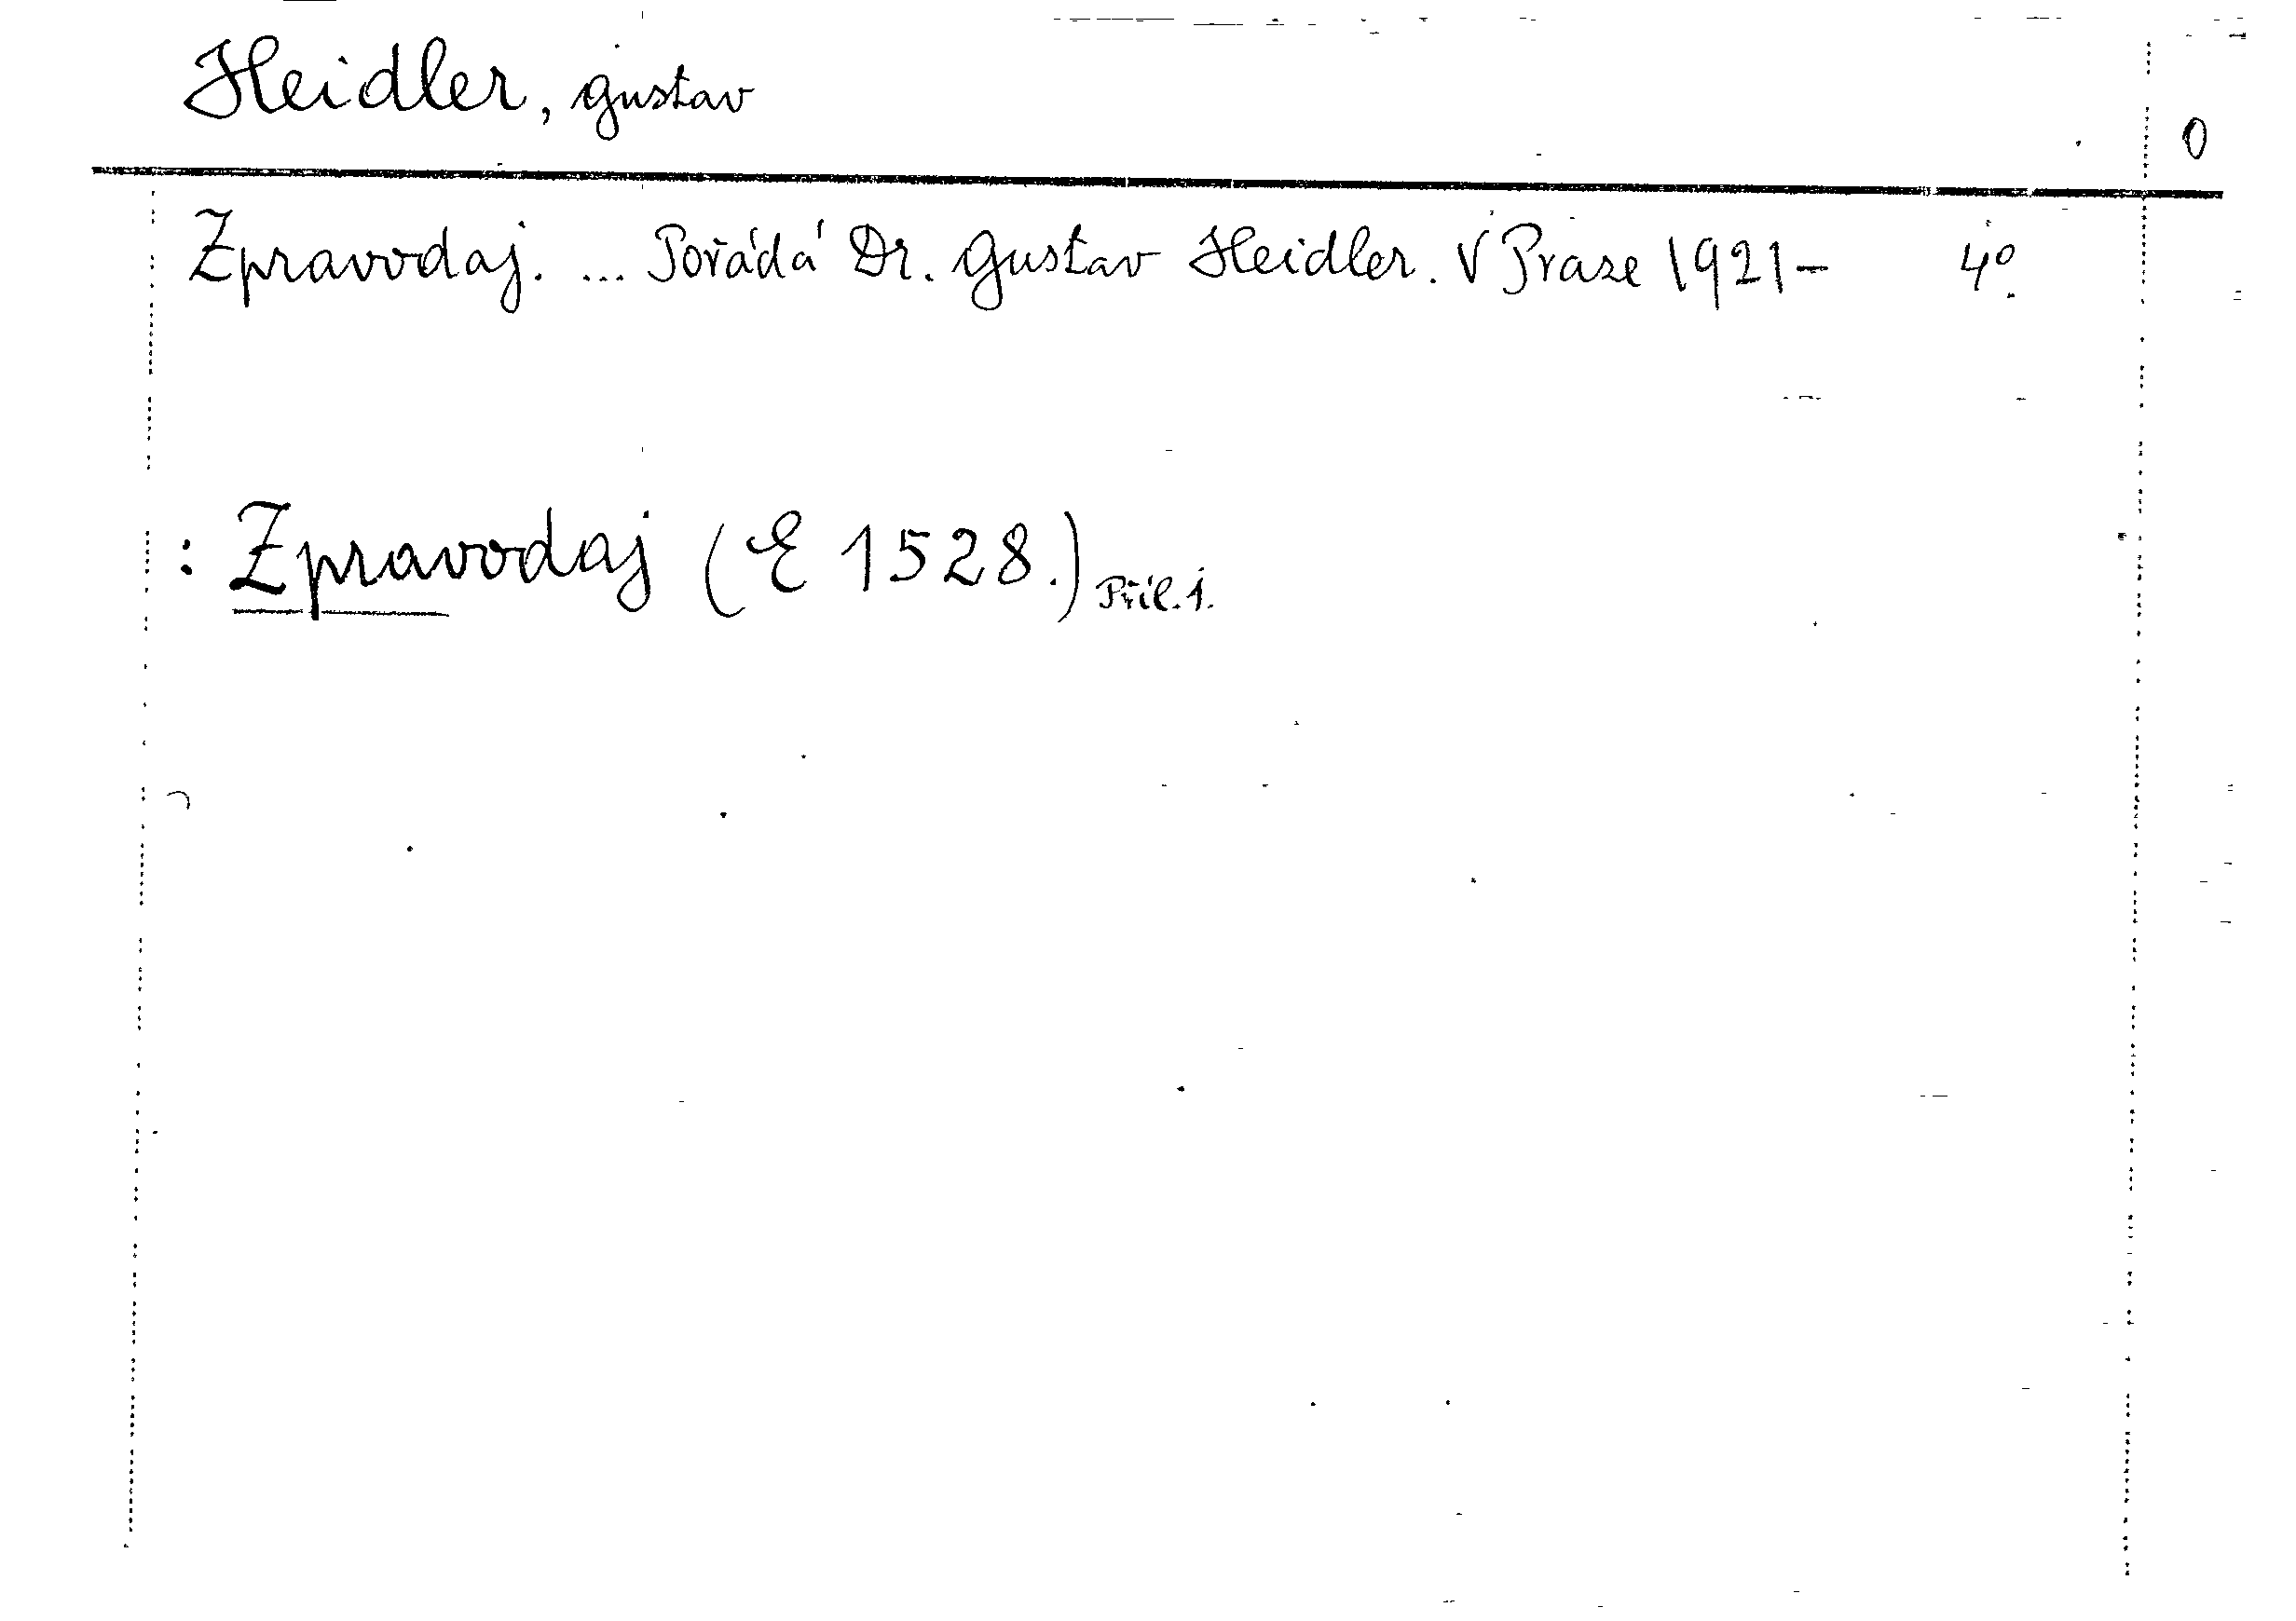 Heidler, Gustav
0
Zpravodaj. ... Pořádá Dr. Gustav Heidler. V Praze 1921- 4°.
: Zpravodaj (E 1528.) Příl. 1.